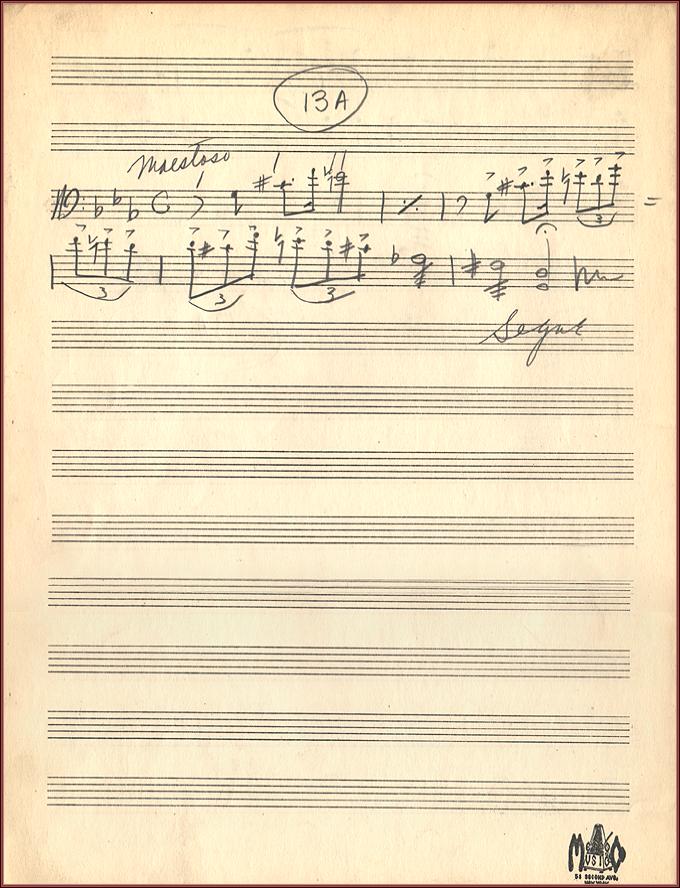 13A
Maestoso
3
3 3 3
Segue
MUSIC CO
58 SECOND AVE.
NEW YORK